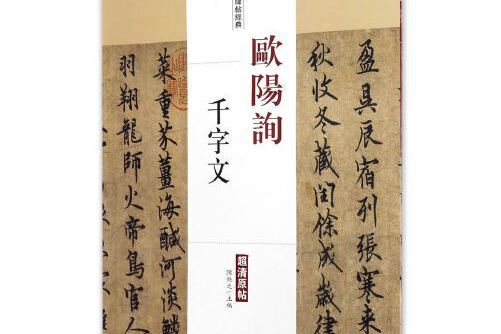 盈昃辰宿列張寒來
秋收冬藏閏餘成歲律
碑帖經典
歐陽詢
千字文
超清原帖
陳鈍之/主編
菜重芥薑海鹹河淡鱗
羽翔龍師火帝鳥官人